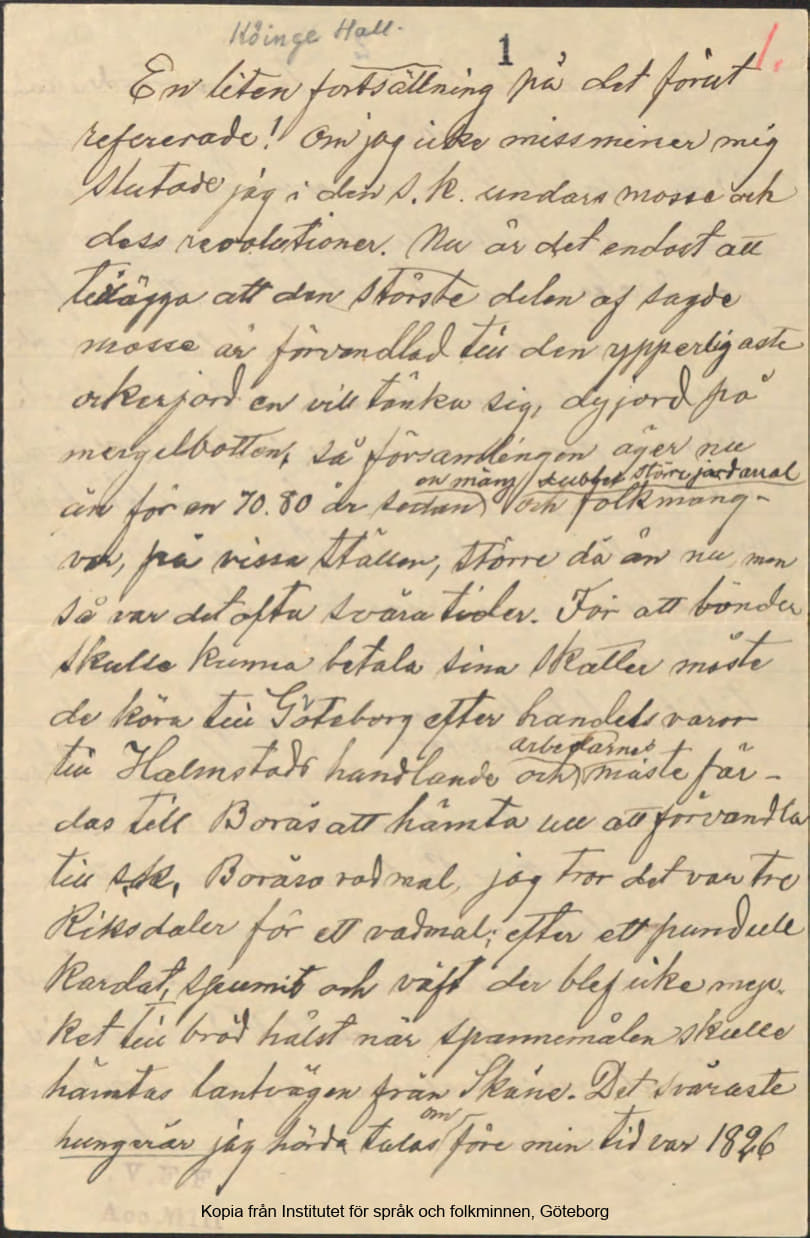 Köinge Hall.
1
1.
En liten fortsättning på det förut
refererade! Om jag icke missminer mig
slutade jag i den s.k. undars mosse och
dess revolutioner. Nu är det endast att
tillägga att den störste delen af sagde
mosse är förvandlad till den ypperligaste
åkerjord en vill tänka sig, dyjord på
mergelbotten, så församlingen äger nu
en mång dubbet större jordareal
än för en 70.80 år sedan och folkmäng-
var, på vissa ställen, större då än nu, men
så var det ofta svåra tider. För att bönder
skulle kunna betala sina skatter måste
de köra till Göteborg efter handelsvaror
till Halmstads handlande och arbetarne måste fär-
das till Borås att hämta ull att förvandla
till s.k. Boråsvadmal, jag tror det var tre
Riksdaler för ett vadmal; efter ett pund ull
kardat, spunnit och väft der blef icke myc-
ket till bröd hälst när spannemålen skulle
hämtas lantvägen från Skåne. Det svåraste
hungerår jag hörda talas om före min tid var 1826
V.F.F
Acc.
Kopia från Institutet för språk och folkminnen, Göteborg